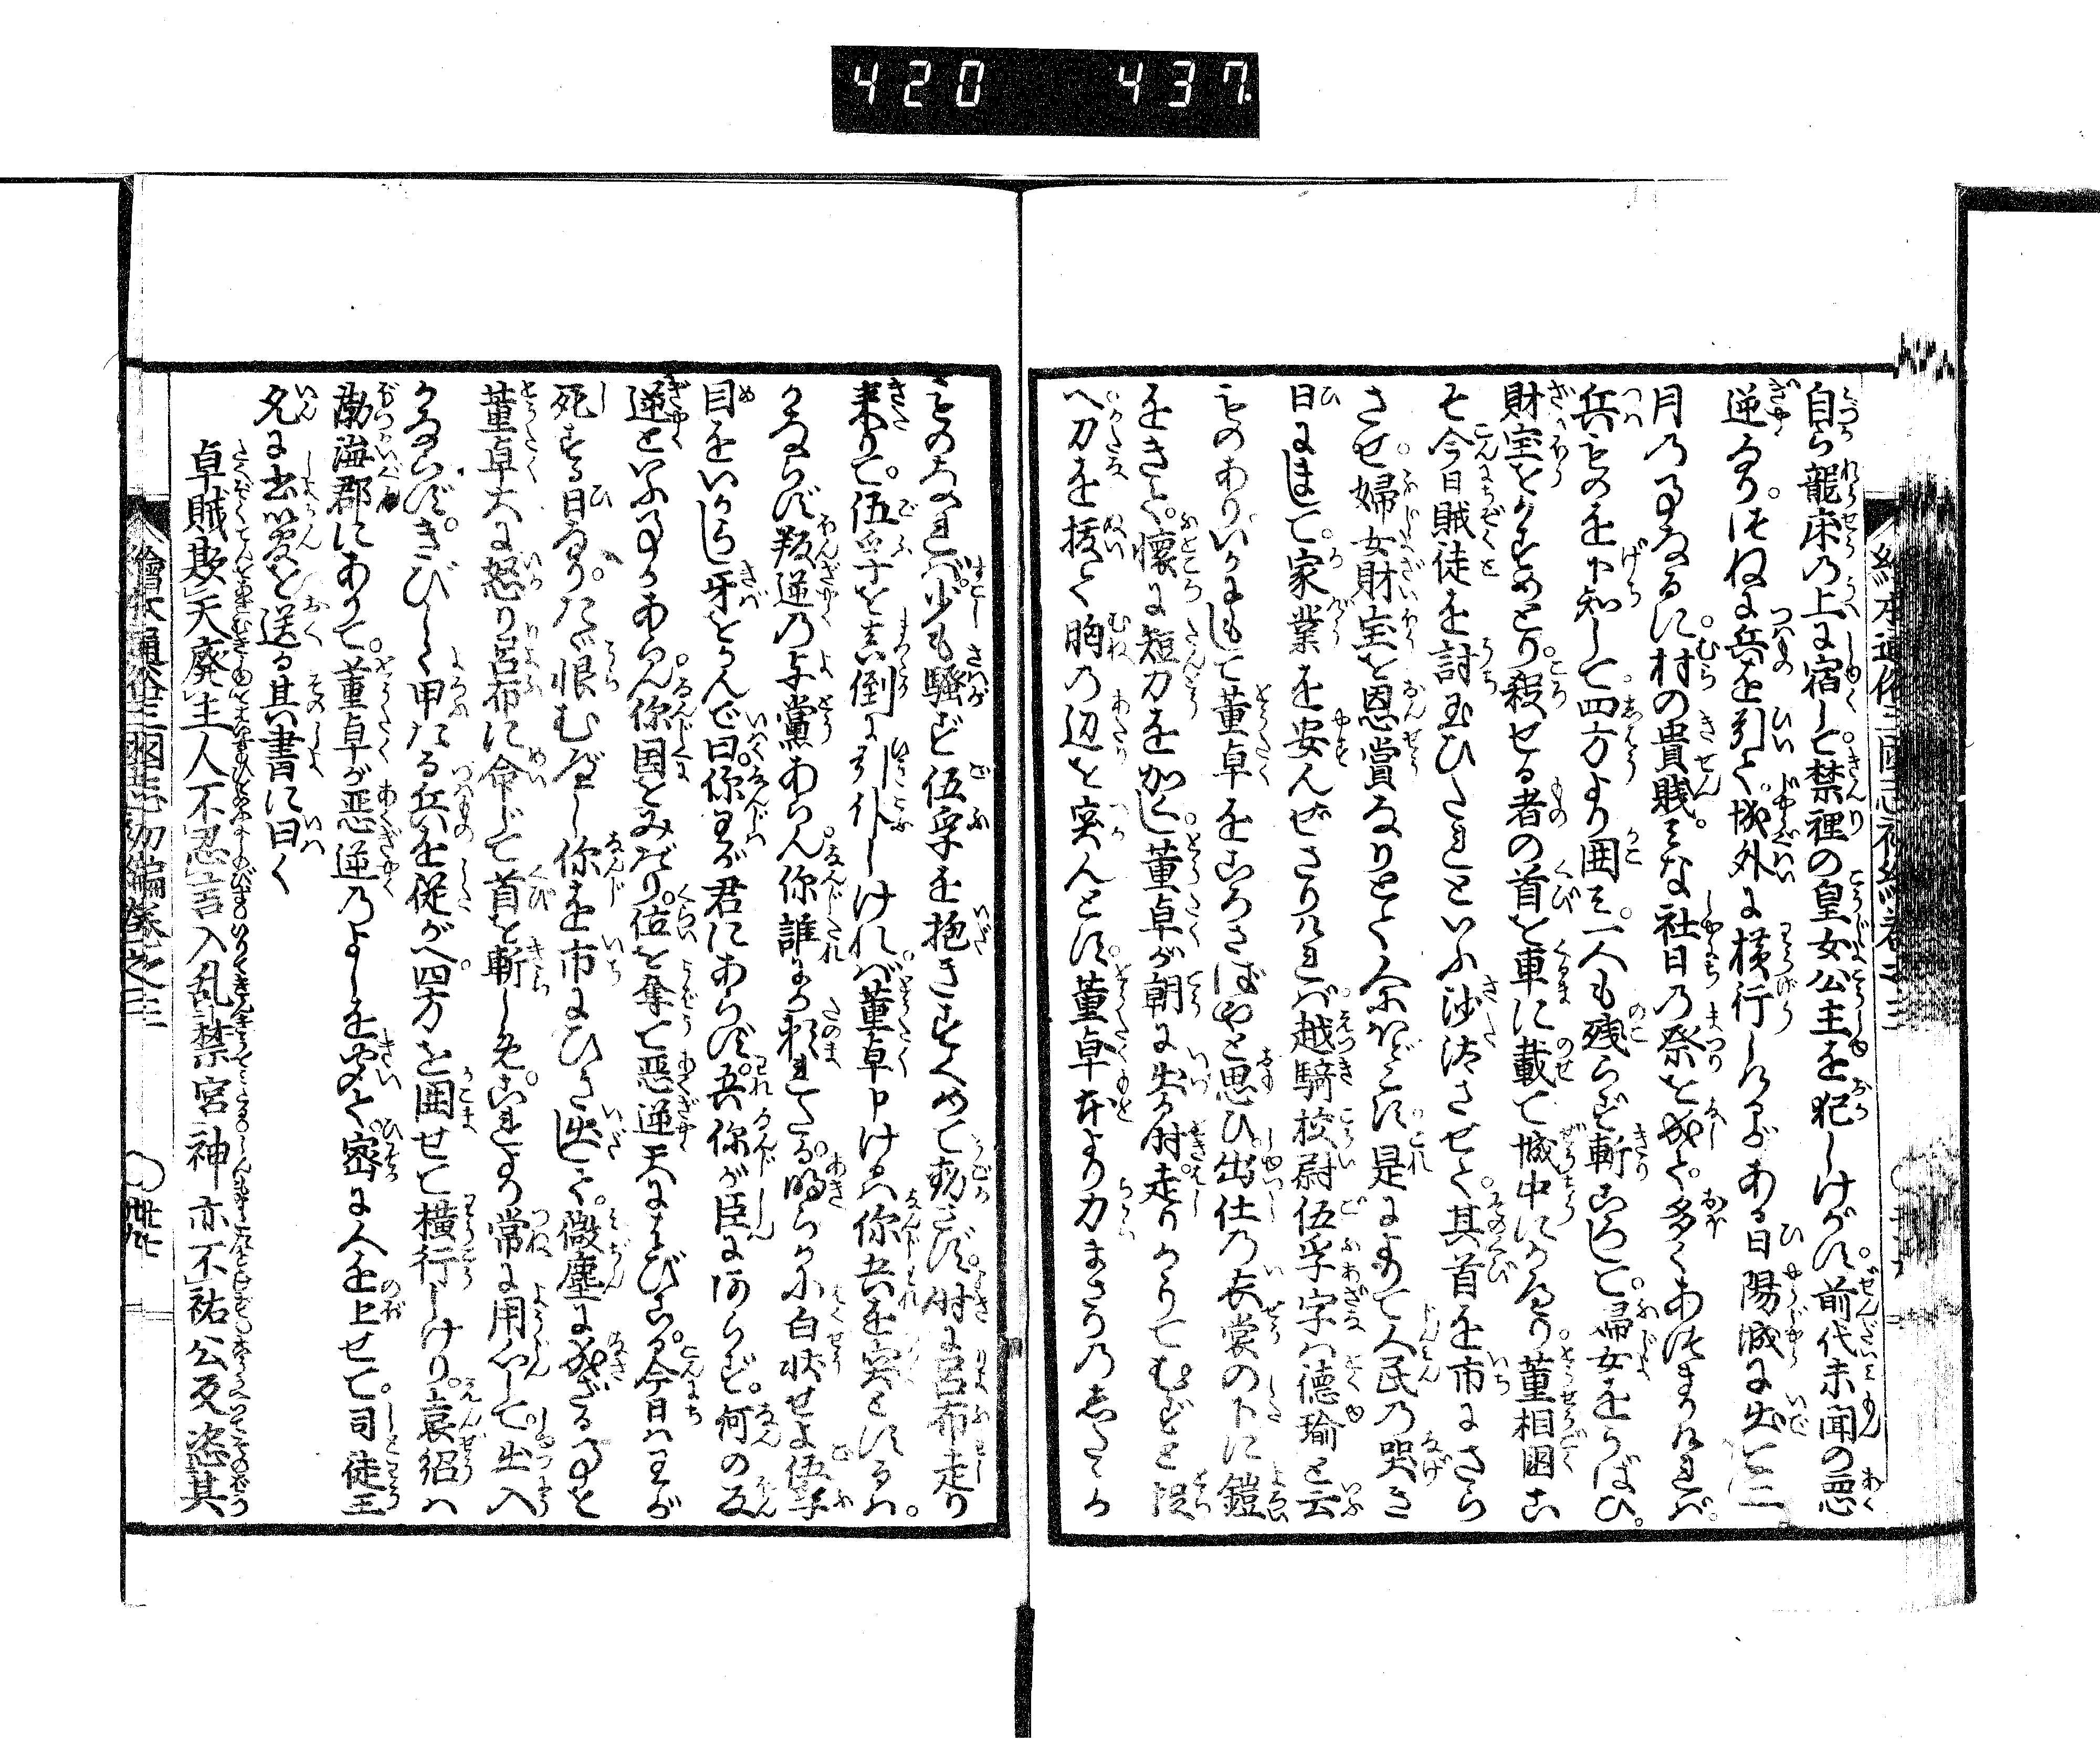 420 437
自ら龍床の上に宿して禁裡の皇女公主を犯しけがす前代未聞の悪
逆なり。つねに兵を引て城外に横行しけるがある日陽城に出て二
月の事なるに村の貴賤みな社日の祭を成て多くあつまりければ。
兵ものを下知して四方より囲み一人も残らず斬ころして。婦女をうばひ。
財宝をかすめとり殺せる者の首を車に載て城中にかへり董相国こ
そ今日賊徒を討玉ひたれといふ沙汰させて。其首を市にさら
させ婦女財宝を恩賞なりとて人にほどこす是によりて人民の哭き
日にまして。家業を安んぜざりければ越騎校尉伍孚字は徳瑜と云
ものありいかにもして董卓をころさばやと思ひ。出仕の衣裳の下に鎧
をきて。懐に短刀をかくし董卓が朝に出る時。走りかかりてむずと捉
へ刀を抜て胸の辺を突んとす。董卓本より力まさりのしたゝか
ものなれば。少も騒ず伍孚を抱きすくめて動さず。時に呂布走り
来りて。伍孚を真倒に引仆しけれバ董卓申けるは你我を突とするは。
かならず叛逆の与黨あらん你誰にか頼れたる。明らかに白状せよ伍孚
目をいからし牙をかんで曰。你わが君にあらず。吾你が臣にあらず。何の反
逆といふ事かあらん你国をみだり。位を奪て悪逆天にをびこる今日はわが
死する日なり。たゞ恨むべし你を市にひき出して。微塵に成ざる事を
董卓大に怒り呂布に命じて首を斬しめ。これより常に用心して。出入
かならず。きびしく甲たる兵を従がへ四方を囲せて横行しけり。袁紹は
渤海郡にありて。董卓が悪逆のよしを聞て。密に人を上せて。司徒王
允に書翰を送る其書に曰く
卓賊欺天廃主人不忍言入乱禁宮神亦不祐公反恣其
繪本通俗三國志初編巻之三